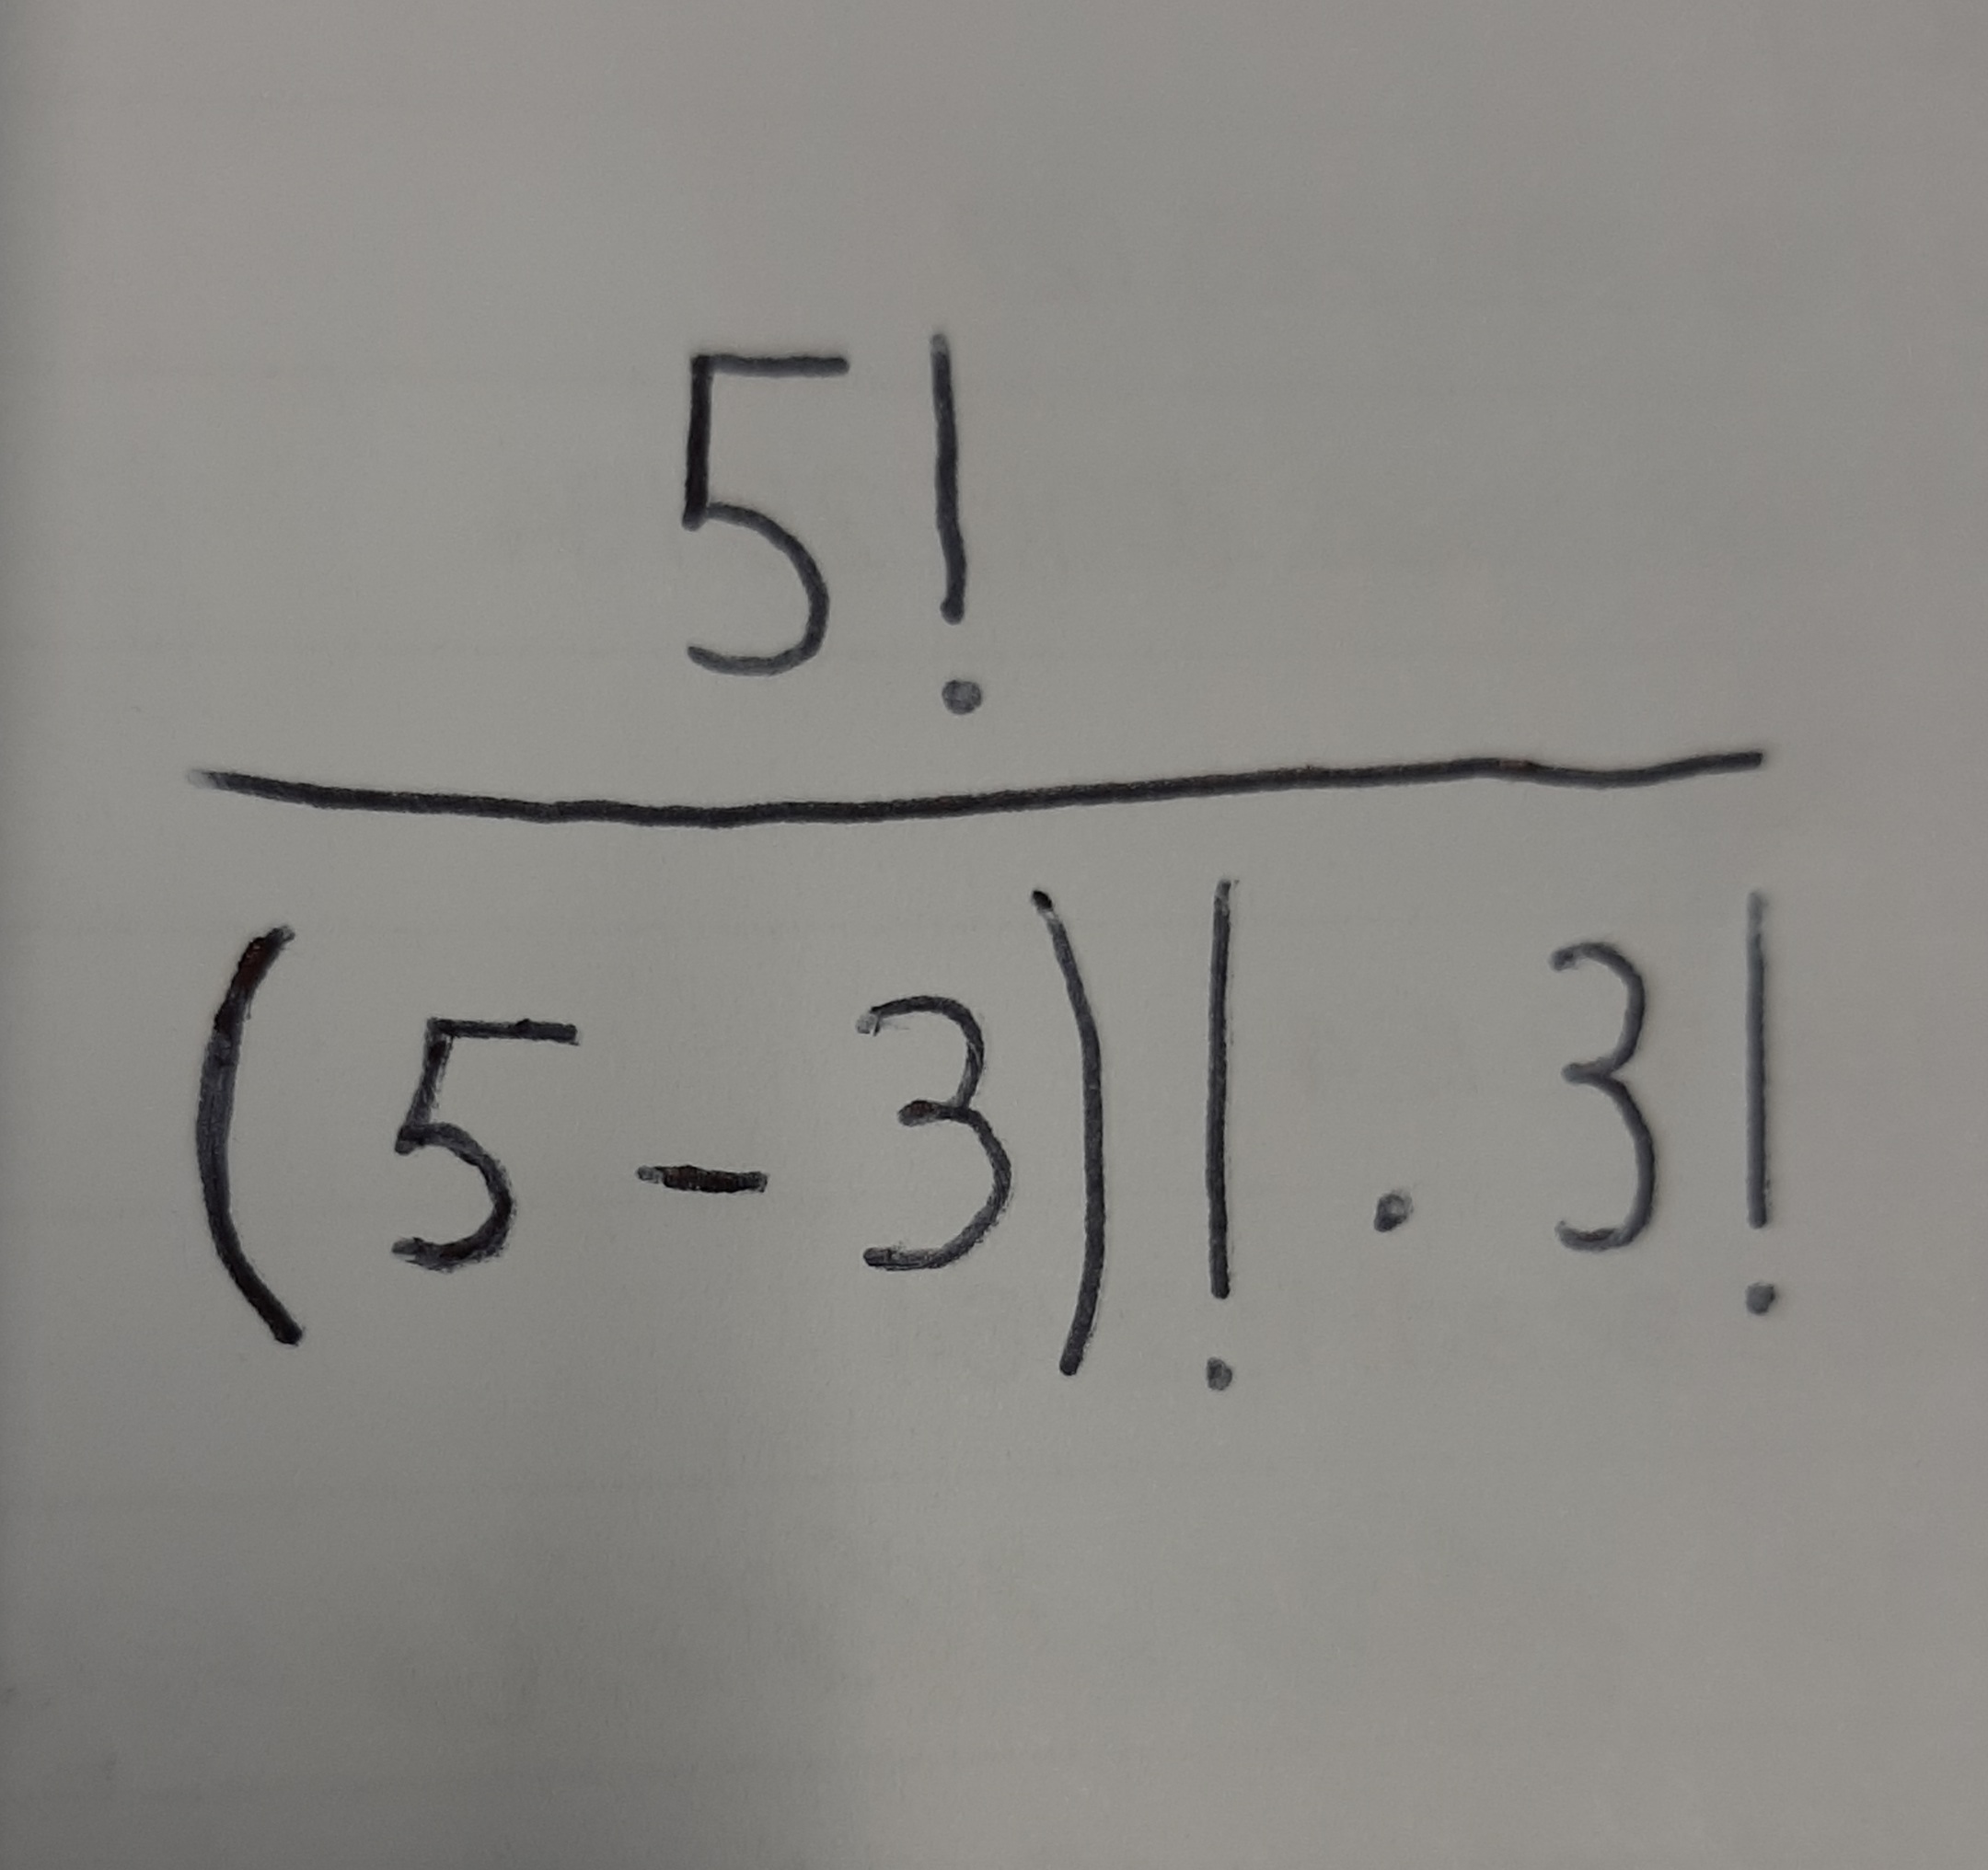 5!
(5-3)! . 3!